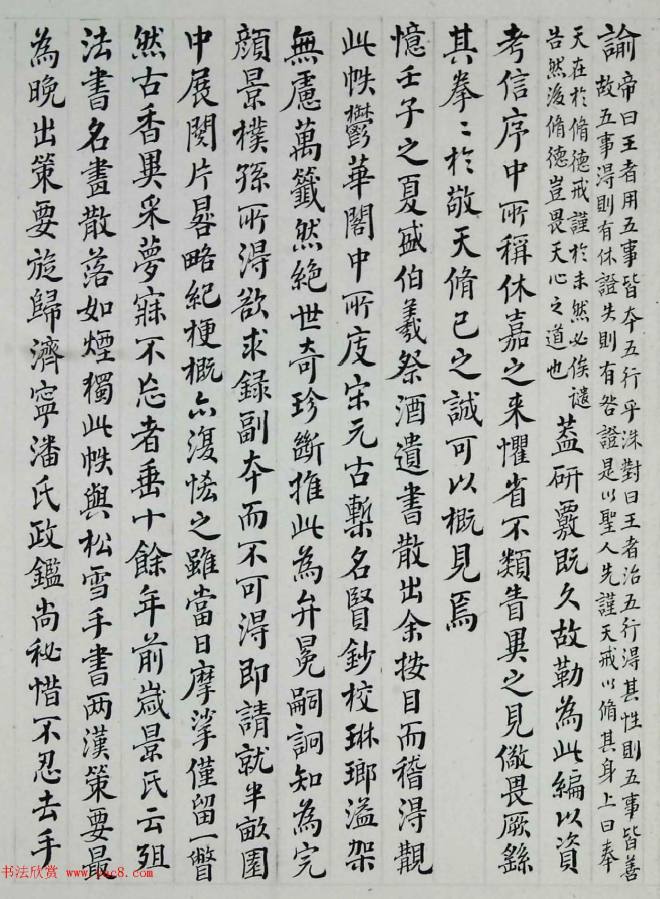 諭帝曰王者用五事皆夲五行乎洙對曰王者治五行得其性則五事皆善
故五事得則有休證失則有咎證是以聖人先謹天戒以脩其身上曰奉
天在於脩德戒謹於未然必俟譴
告然後脩德豈畏天心之道也
蓋研覈既久故勒為此編以資
考信序中所稱休嘉之来懼省不類眚異之見儆畏厥繇
其拳〻於敬天脩己之誠可以概見焉
憶壬子之夏盛伯羲祭酒遺書散出余按目而稽得覩
此帙鬱華閣中所庋宋元古槧名賢鈔校琳瑯溢架
無慮萬籤然絕世奇珍斷推此為弁冕嗣詗知為完
顏景樸孫所得欲求録副夲而不可得即請就半畝園
中展閱片晷略紀梗概亦復恡之雖當日摩挲僅留一瞥
然古香異采夢寐不忘者垂十餘年前嵗景氏云殂
法書名畫散落如煙獨此帙與松雪手書两漢策要最
為晚出策要旋歸濟寧潘氏政鑑尚秘惜不忍去手
书法欣赏